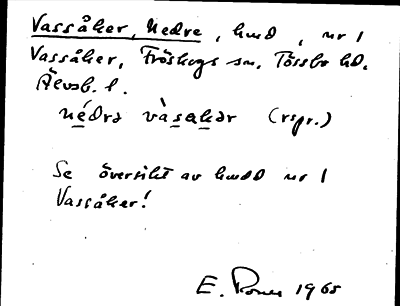 Vassåker, Nedre, hmd, nr 1
Vassåker, Fröskogs sn, Tössbo hd,
Älvsb. l.
nédrə vàsakər (rspr.)
Se översikt av hmdd nr 1
Vassåker!
E. 1965